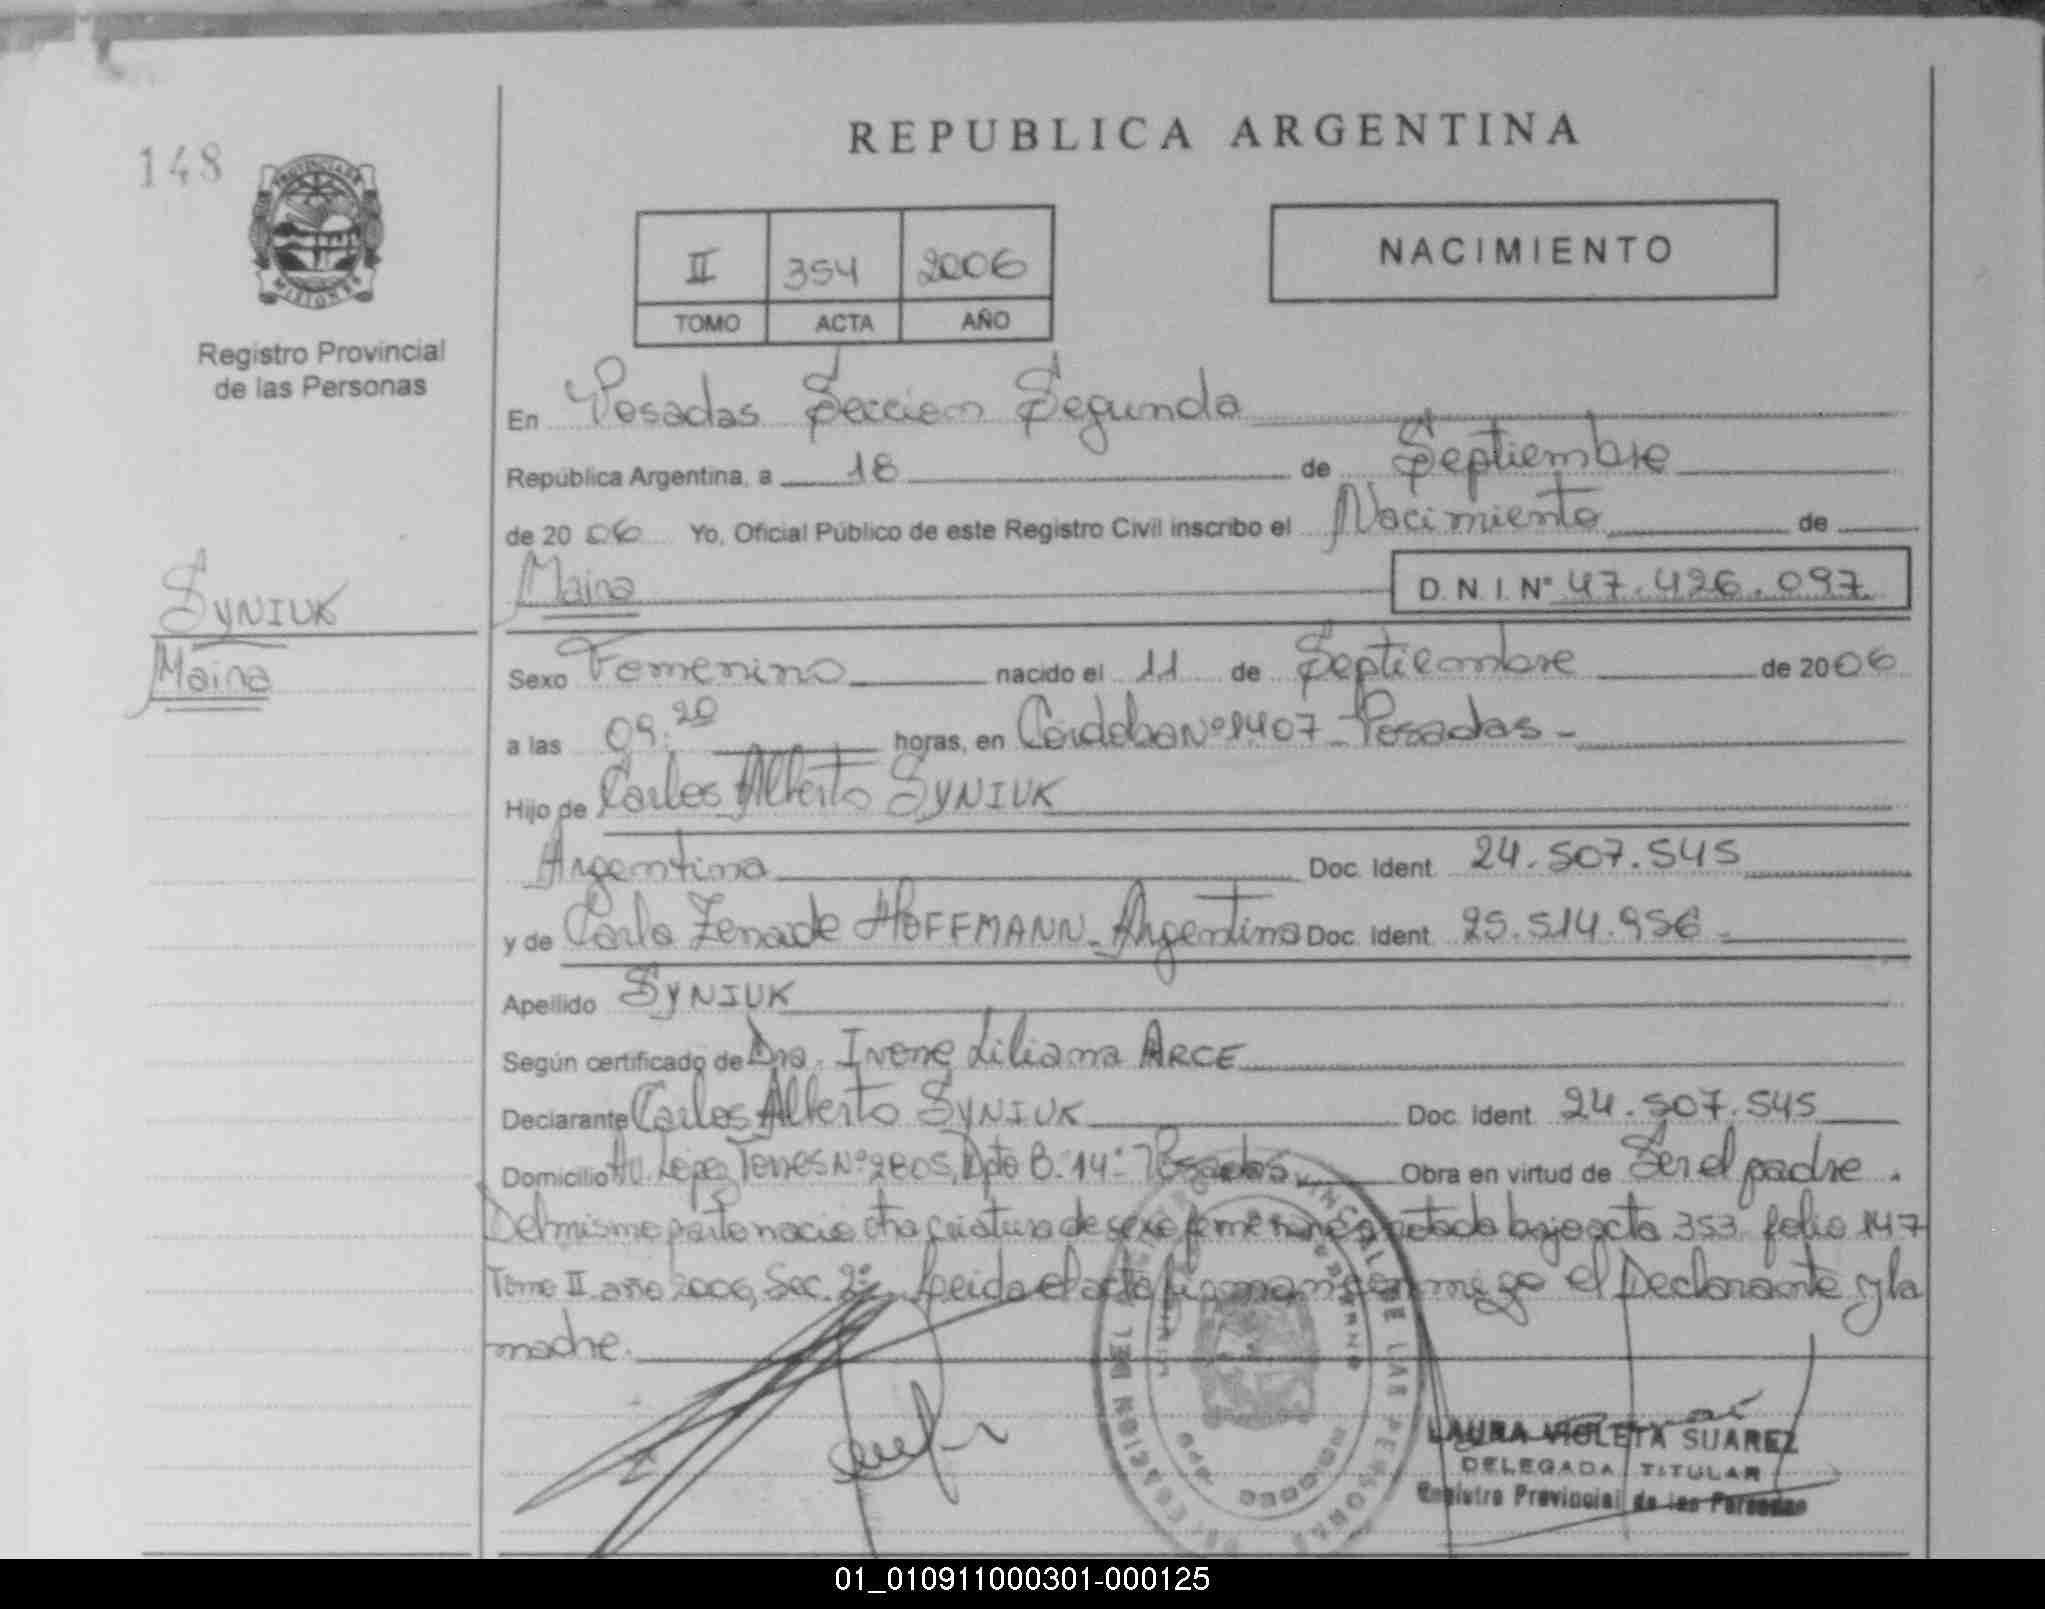 REPUBLICA ARGENTINA
148
PROVINCIA DE
MISIONES
Registro Provincial
de las Personas
II 354 2006
TOMO ACTA AÑO
NACIMIENTO
En Posadas Seccion Segunda
República Argentina, a 18 de Septiembre
de 2006 Yo, Oficial Público de este Registro Civil inscribo el Nacimiento de
Maira D.N.I. Nº 47.426.097.
SYNIUK
Maira
Sexo Femenino nacido el 11 de Septiembre de 2006
a las 09:20 horas, en Córdoba Nº 1407 - Posadas -
Hijo de Carlos Alberto SYNIUK
Argentina Doc. Ident. 24.507.545
y de Carla Zenaide HOFFMANN - Argentina Doc. Ident. 25.514.956.
Apellido SYNIUK
Según certificado de Dra. Ivone Liliana ARCE
Declarante Carlos Alberto SYNIUK Doc. Ident. 24.507.545
Domicilio Av. López Torres Nº 2805, Dpto B. 14 - Posadas Obra en virtud de Ser el padre.
Del mismo parto nacio otra criatura de sexo femenino anotada bajo acta 353 folio 147
Tomo II año 2006, Sec. 2º. Leida el acta firman conmigo el Declarante y la
madre.
LAURA VIOLETA SUAREZ
DELEGADA TITULAR
Registro Provincial de las Personas
01_010911000301-000125